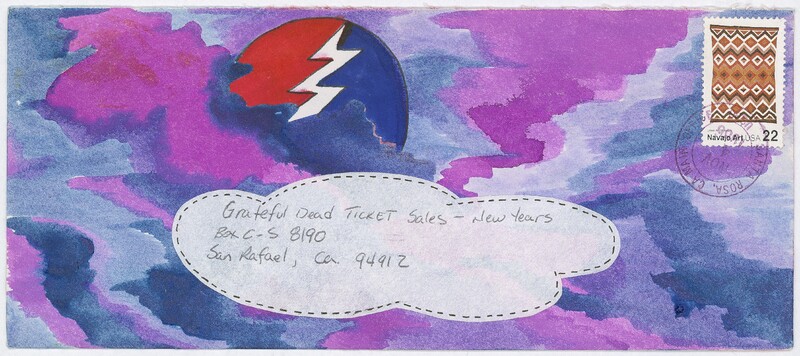 Navajo Art USA 22
SANTA ROSA, CA
Grateful Dead TICKET Sales - New Years
Box C-S 8190
San Rafael, Ca. 94912